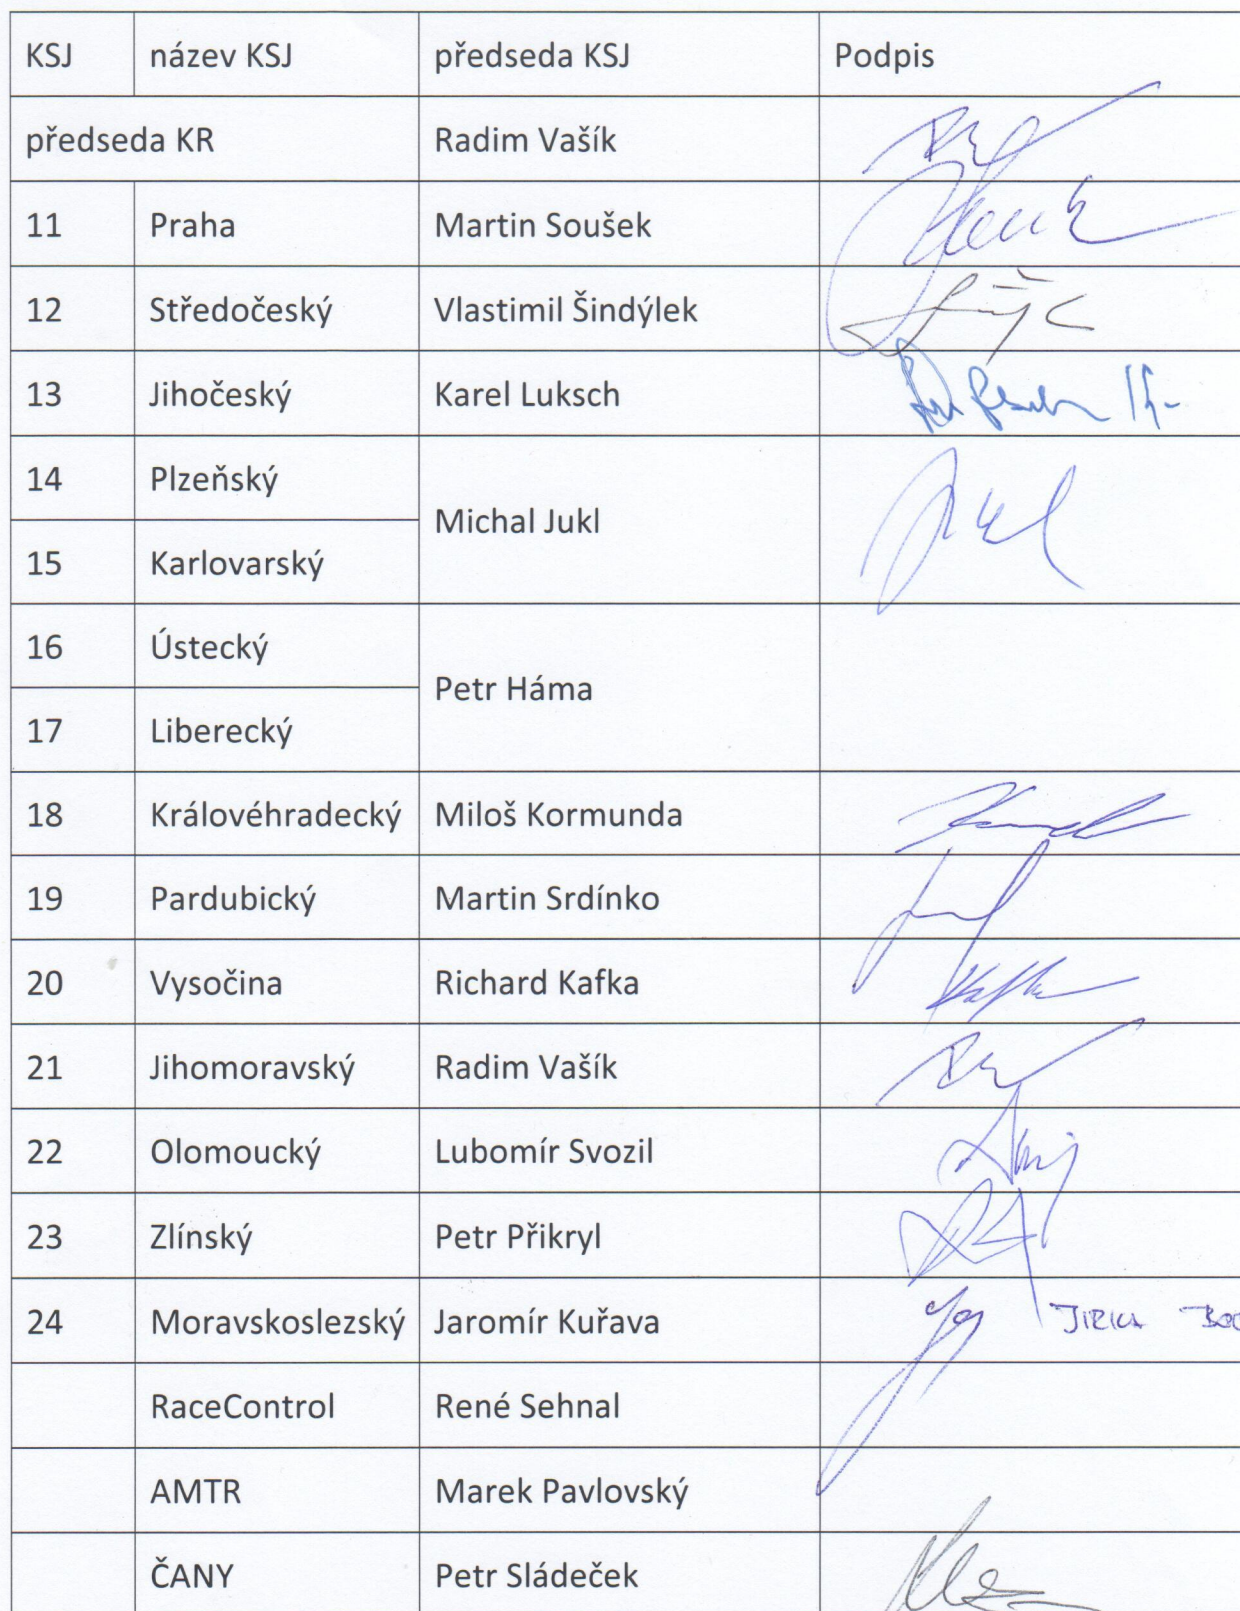 KSJ název KSJ předseda KSJ Podpis
předseda KR Radim Vašík
11 Praha Martin Soušek
12 Středočeský Vlastimil Šindýlek
13 Jihočeský Karel Luksch
14 Plzeňský
Michal Jukl
15 Karlovarský
16 Ústecký
Petr Háma
17 Liberecký
18 Královéhradecký Miloš Kormunda
19 Pardubický Martin Srdínko
20 Vysočina Richard Kafka
21 Jihomoravský Radim Vašík
22 Olomoucký Lubomír Svozil
23 Zlínský Petr Přikryl
24 Moravskoslezský Jaromír Kuřava
RaceControl René Sehnal
AMTR Marek Pavlovský
ČANY Petr Sládeček